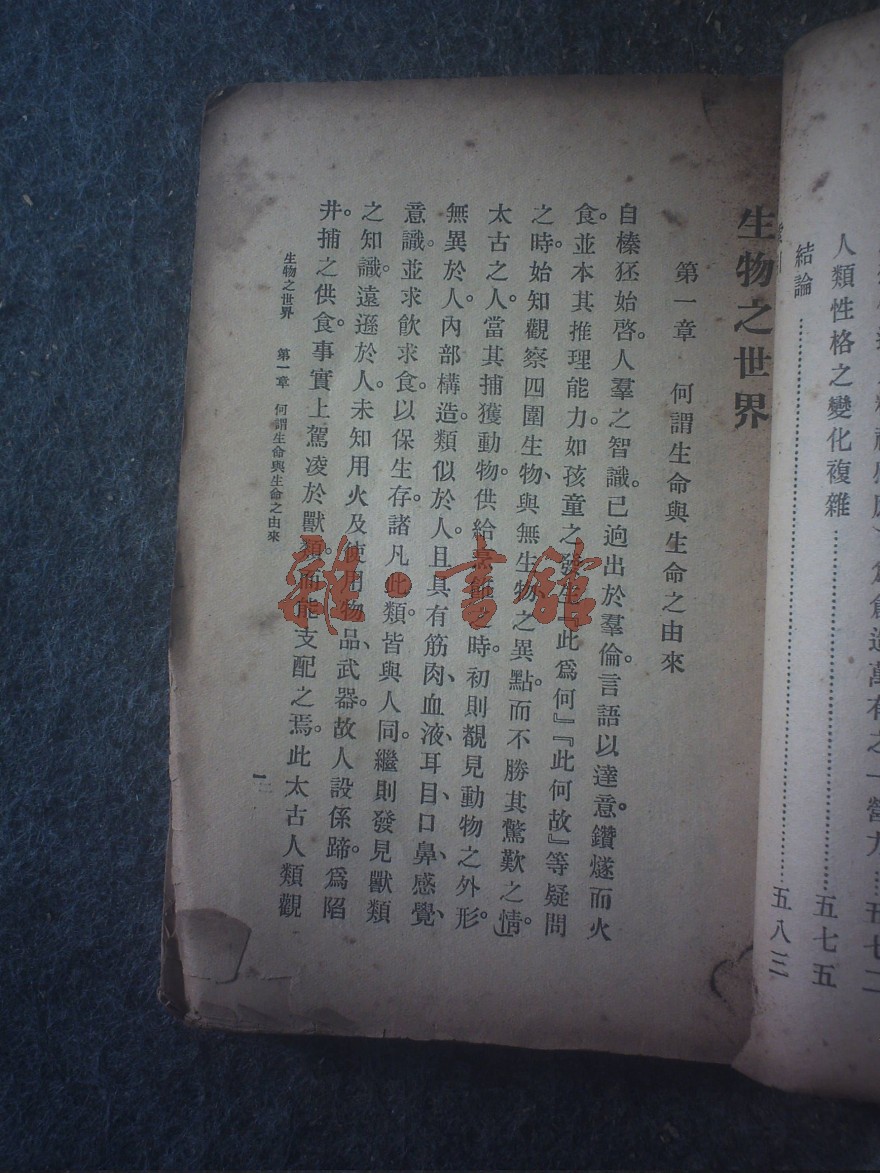 人類性格之變化複雜……五七五
結論……五八三
生物之世界
第一章　何謂生命與生命之由來
自榛狉始啓。人羣之智識。已逈出於羣倫。言語以達意。鑽燧而火
食。並本其推理能力。如孩童之發生『此爲何』『此何故』等疑問
之時。始知觀察四圍生物、與無生物、之異點。而不勝其驚歎之情。
太古之人。當其捕獲動物。供給之時。初則覩見動物之外形。
無異於人。內部構造。類似於人。且具有筋肉、血液、耳目、口鼻、感覺、
意識。並求飮求食。以保生存。諸凡此類。皆與人同。繼則發見獸類
之知識。遠遜於人。未知用火及使用物品、武器。故人設係蹄。爲陷
井。捕之供食。事實上駕凌於獸類。而能支配之焉。此太古人類觀
生物之世界　第一章　何謂生命與生命之由來
一
雜·書館